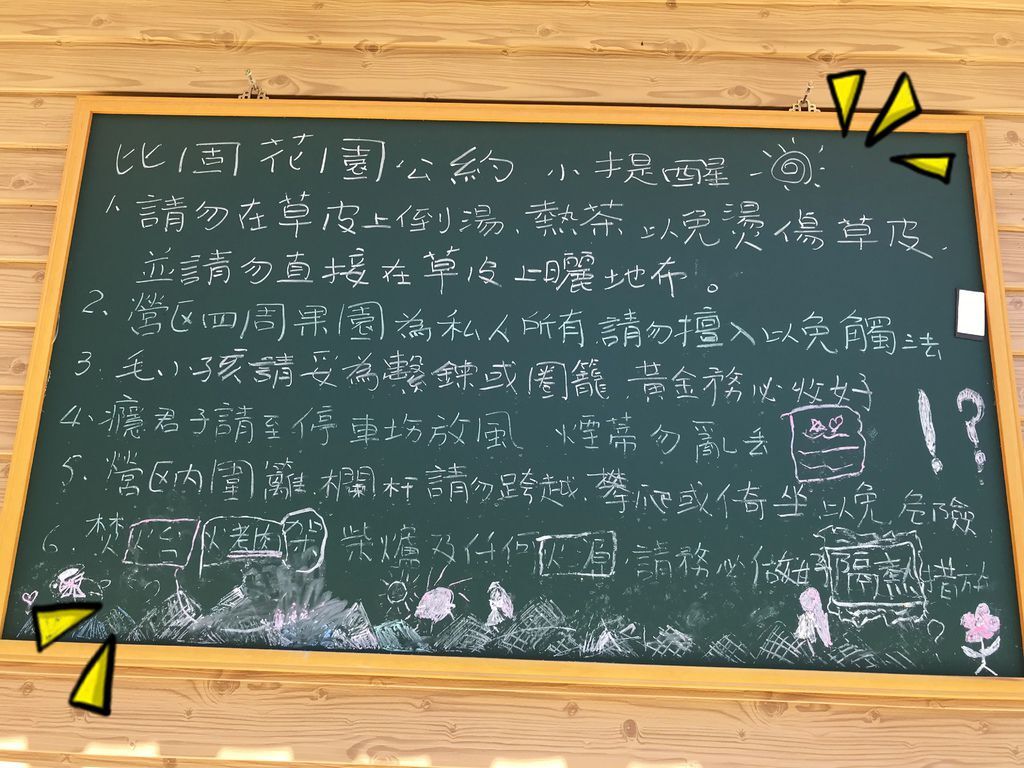 比個花園公約 小提醒
1. 請勿在草皮上倒湯、熱茶 以免燙傷草皮，
並請勿直接在草皮上曬地布。
2. 營区四周果園為私人所有，請勿擅入以免觸法
3. 毛小孩請妥為繫鍊或圈籠，黃金務必收好
4. 癮君子請至停車場放風 煙蒂勿亂丟 !?
5. 營区内圍籬、欄杆請勿跨越、攀爬或倚坐以免危險
6. 焚火台 柴爐及任何火源 請務必做好隔熱措施